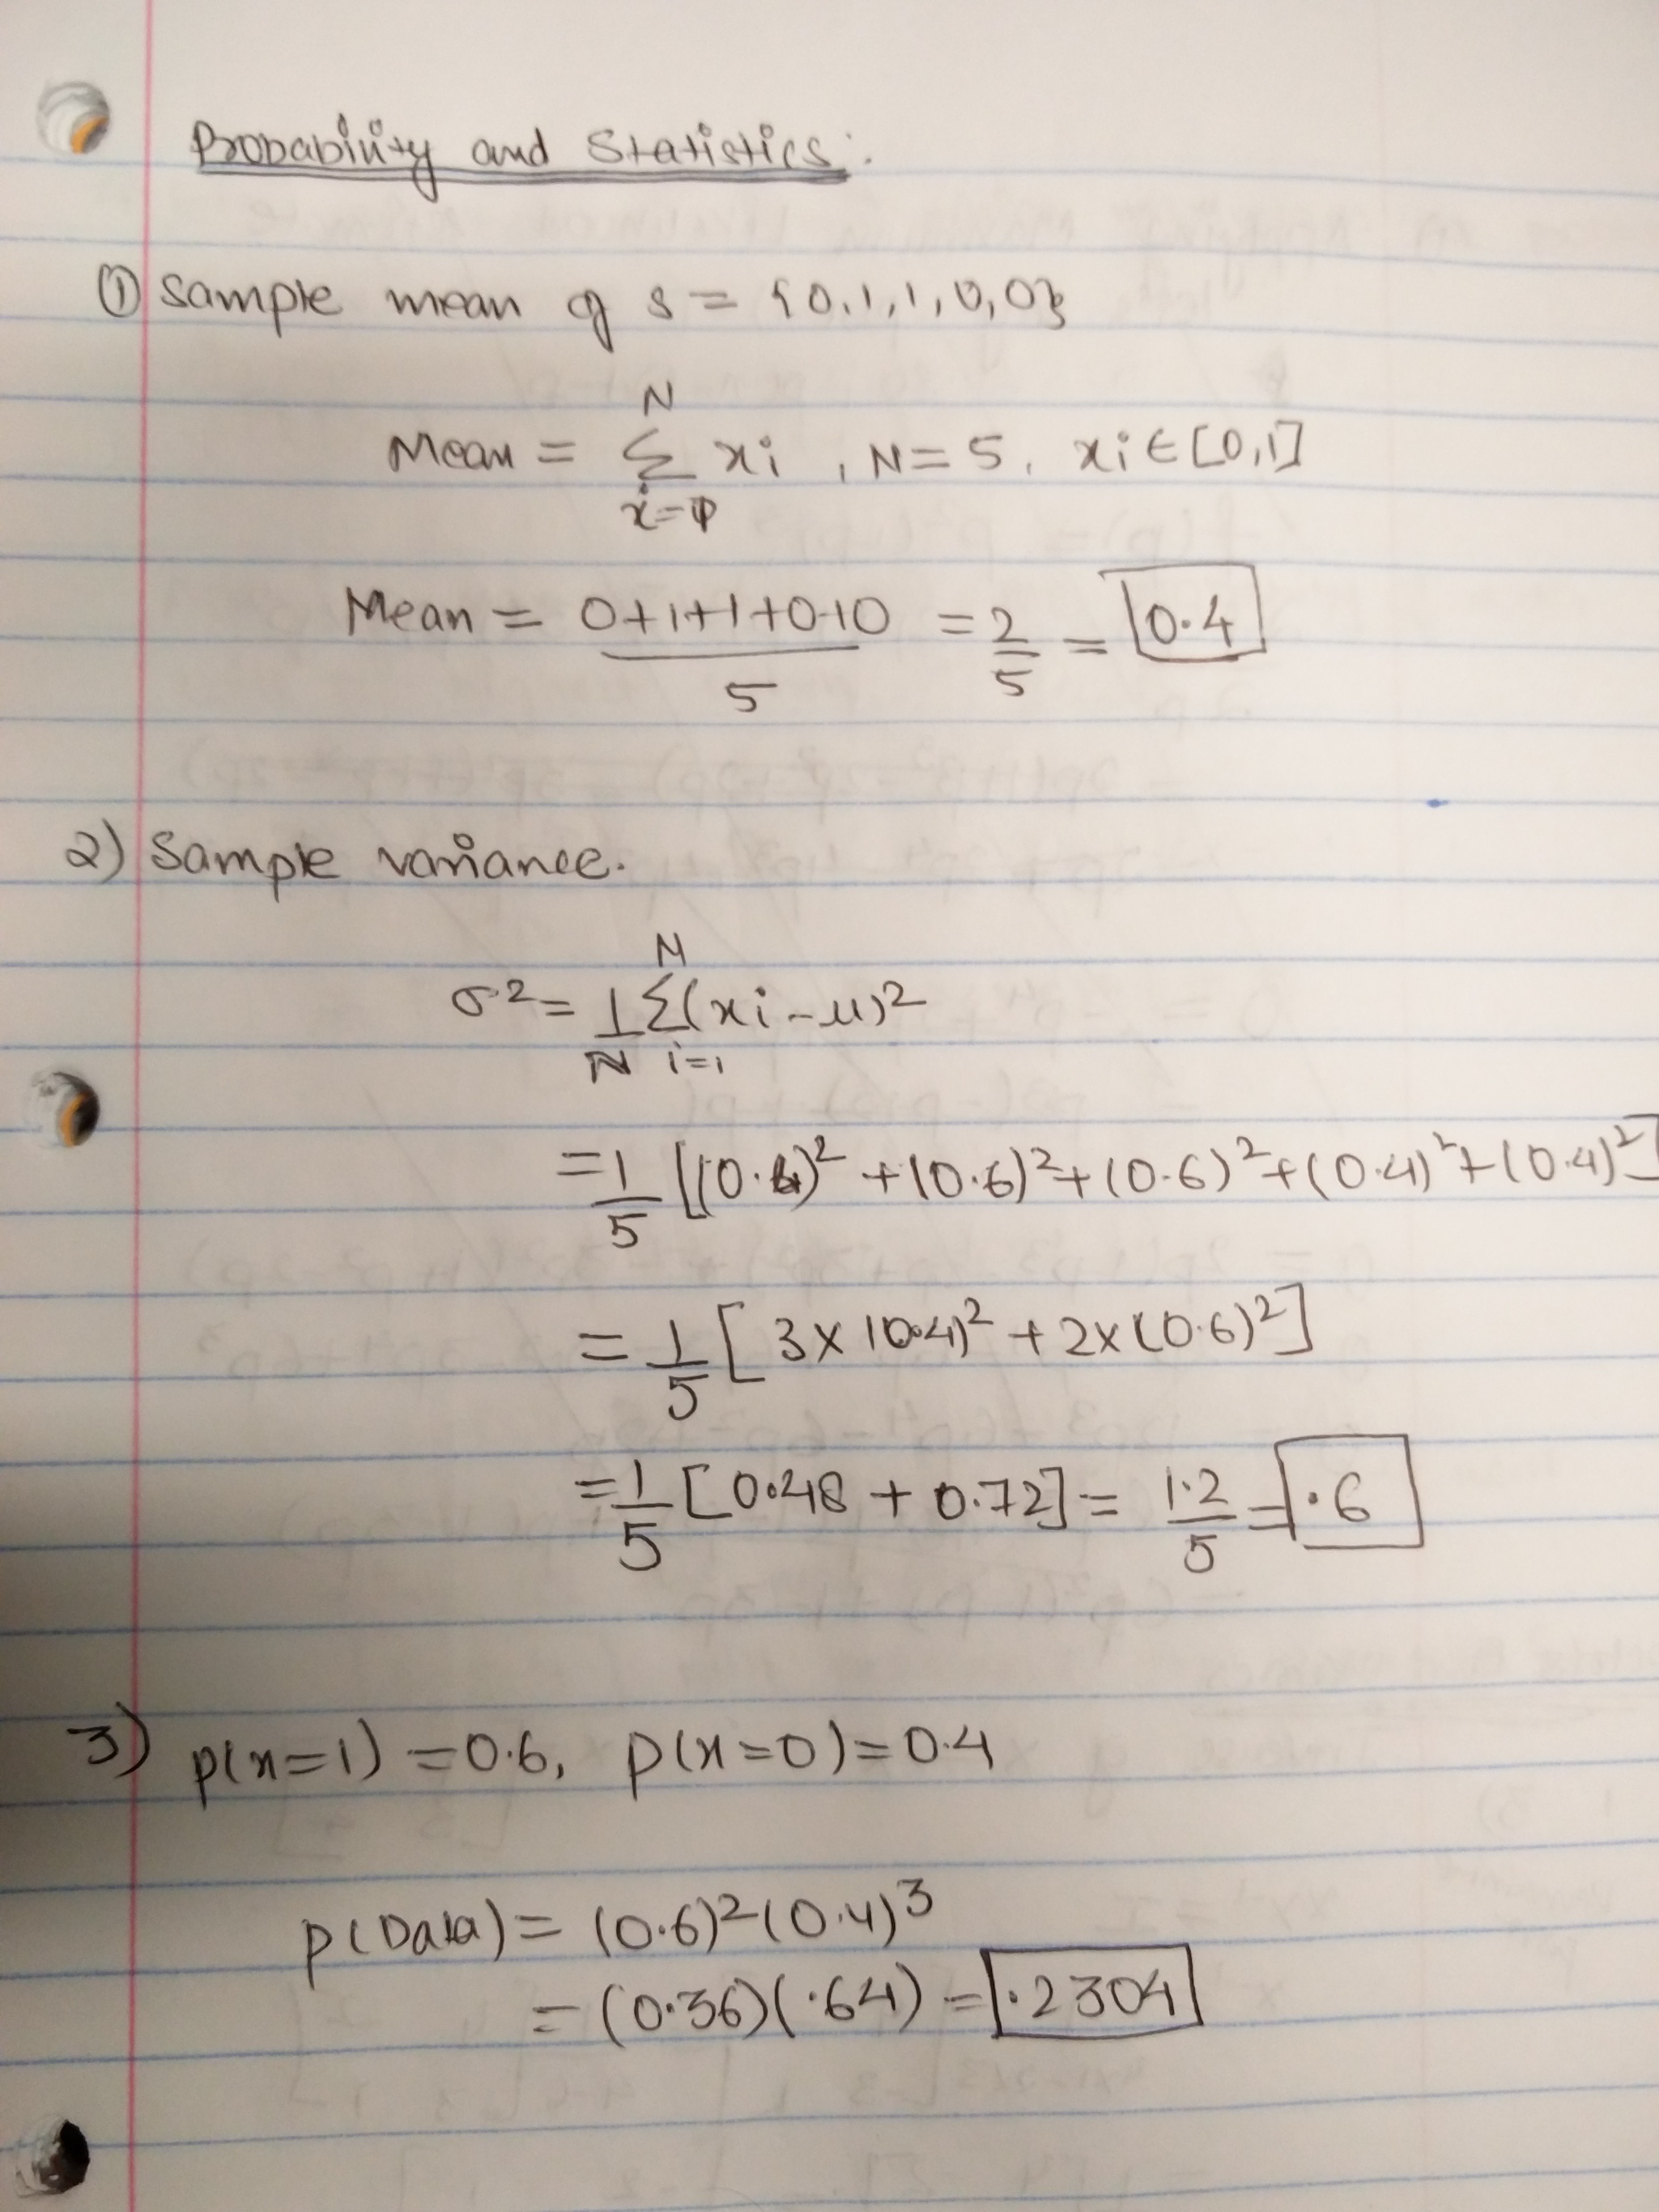 Probability and Statistics:
① Sample mean of s = {0,1,1,0,0}
N
Mean = Σ xi , N=5, xi ∈ [0,1]
i=1
Mean = 0+1+1+0+0 = 2 = 0.4
5 5
2) Sample variance.
N
σ2 = 1 Σ(xi - μ)2
N i=1
= 1 [(0.4)2 + (0.6)2 + (0.6)2 + (0.4)2 + (0.4)2]
5
= 1 [ 3 x (0.4)2 + 2x(0.6)2]
5
= 1 [0.48 + 0.72] = 1.2 = .6
5 5
3) p(x=1) = 0.6, p(x=0) = 0.4
p(Data) = (0.6)2(0.4)3
= (0.36)(.64) = .2304